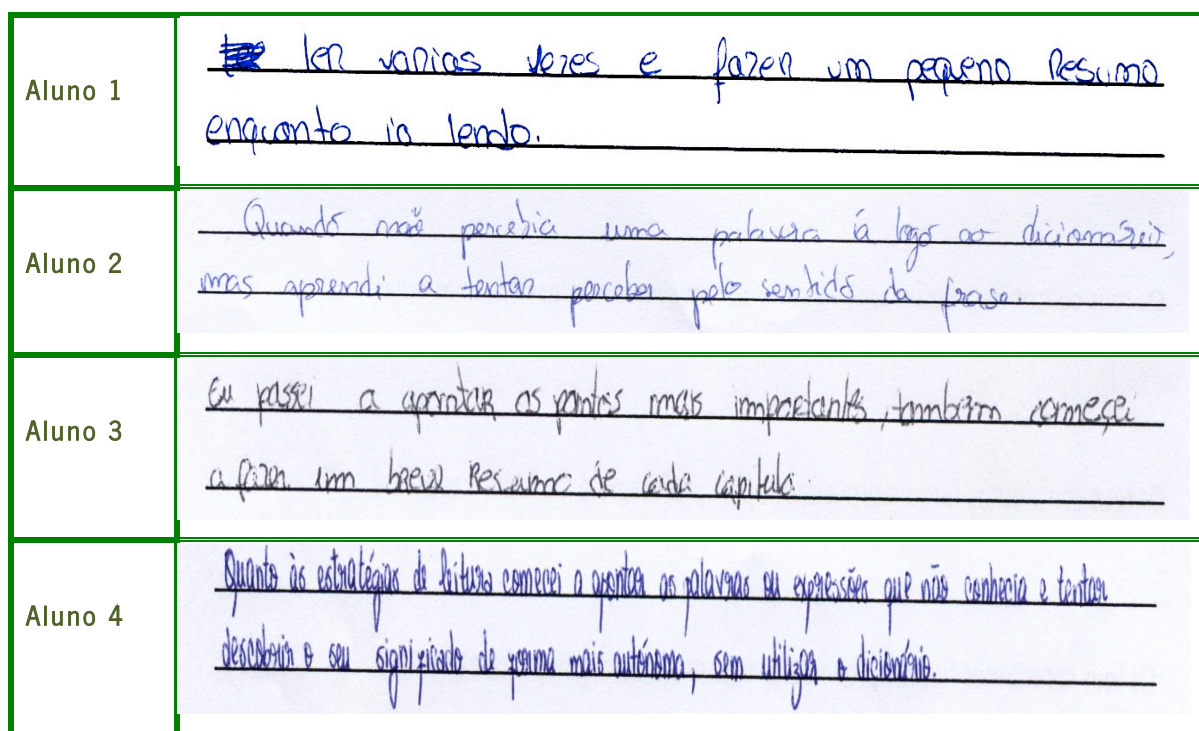 Aluno 1
ler varias vezes e fazer um pequeno Resumo
enquanto ia lendo.
Aluno 2
Quando não percebia uma palavra ia logo ao dicionário,
mas aprendi a tentar perceber pelo sentido da frase.
Aluno 3
Eu passei a apontar os pontos mais importantes, também começei
a fazer um breve Resumo de cada capitulo.
Aluno 4
Quanto às estratégias de leitura comecei a apontar as palavras ou expressões que não conhecia e tentar
descobrir o seu significado de forma mais autónoma, sem utilizar o dicionário.